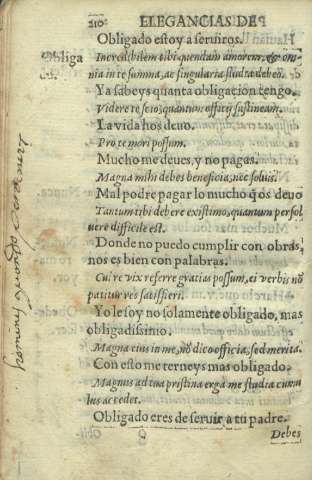 210. ELEGANCIAS DE P
Obligado estoy a seruiros.
Obliga
Incredibilem tibi quendam amorem, & om-
nia in te summa, ac singularia studia debeo.
Ya sabeys quanta obligacion tengo.
Videre te scio, quantum officij sustineam.
La vida hos deuo.
Pro te mori possum.
Mucho me deues, y no pagas.
Magna mihi debes beneficia, nec soluis.
Mal podre pagar lo mucho q̃ os deuo
Tantum tibi debere existimo, quantum persol
uere difficile est.
Donde no puedo cumplir con obras,
nos es bien con palabras.
Cui re vix referre gratias possum, ei verbis nō
patitur res satisfieri.
Yo le soy no solamente obligado, mas
obligadissimo.
Magna eius in me, nō dico officia, sed merita.
Con esto me terneys mas obligado.
Magnus ad tua pristina erga me studia cumu
lus accedet.
Obligado eres de seruir a tu padre.
Debes